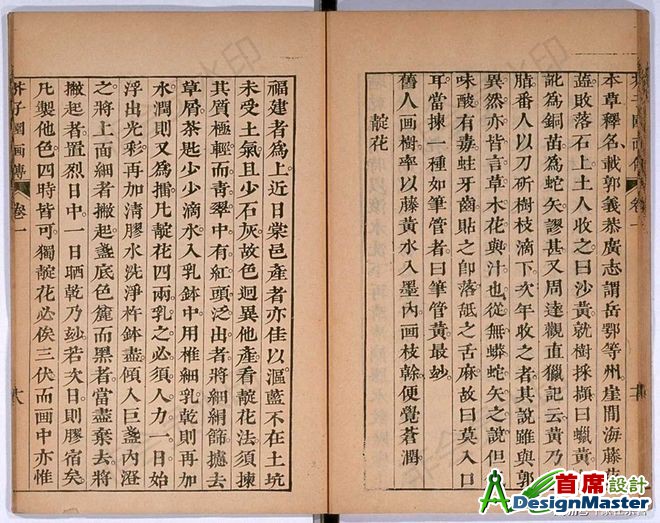 本草釋名載郭義恭廣志謂岳鄂等州崖間海藤花
蕋敗落石上土人收之曰沙黃就樹採擷曰蠟黃
訛為銅苗為蛇矢謬甚又周達觀真臘記云黃乃
脂番人以刀斫樹枝滴下次年收之者其說雖與郭
異然亦皆言草木花與汁也從無蟒蛇矢之說但
味酸有毒蛀牙齒貼之即落舐之舌麻故曰莫入口
耳當揀一種如筆管者曰筆管黃最玅
舊人画樹率以藤黃水入墨內画枝幹便覺蒼潤
靛花
福建者為上近日棠邑產者亦佳以漚藍不在土坑
未受土氣且少石灰故色迥異他產看靛花法須揀
其質極輕而青翠中有紅頭泛出者將細絹篩攄去
草屑茶匙少少滴水入乳鉢中用椎細乳乾則再加
水潤則又為擂凡靛花四兩乳之必須人力一日始
浮出光彩再加清膠水洗淨杵鉢盡傾入巨盞內澄
之將上面細者撇起盞底色麄而黑者當盡棄去將
撇起者置烈日中一日晒乾乃玅若次日則膠宿矣
凡製他色四時皆可獨靛花必俟三伏而画中亦惟
芥子園画傳 卷一 六
首席設計
DesignMaster